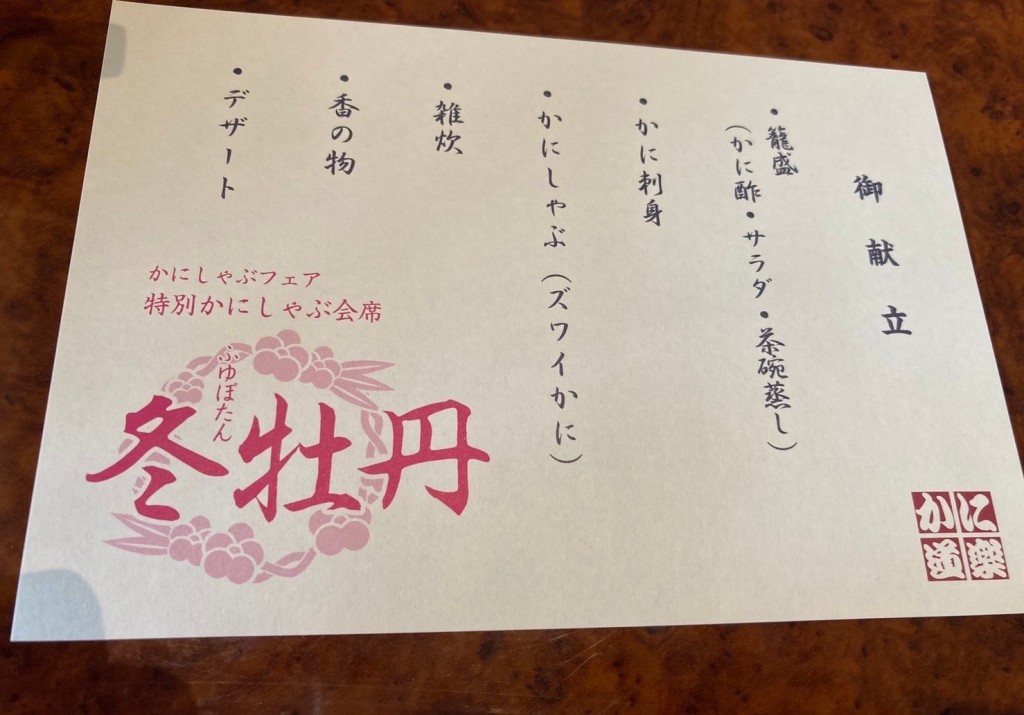 御献立
・籠盛
(かに酢・サラダ・茶碗蒸し)
・かに刺身
・かにしゃぶ(ズワイかに)
・雑炊
・香の物
・デザート
かにしゃぶフェア
特別かにしゃぶ会席
ふゆぼたん
冬牡丹
かに
道楽